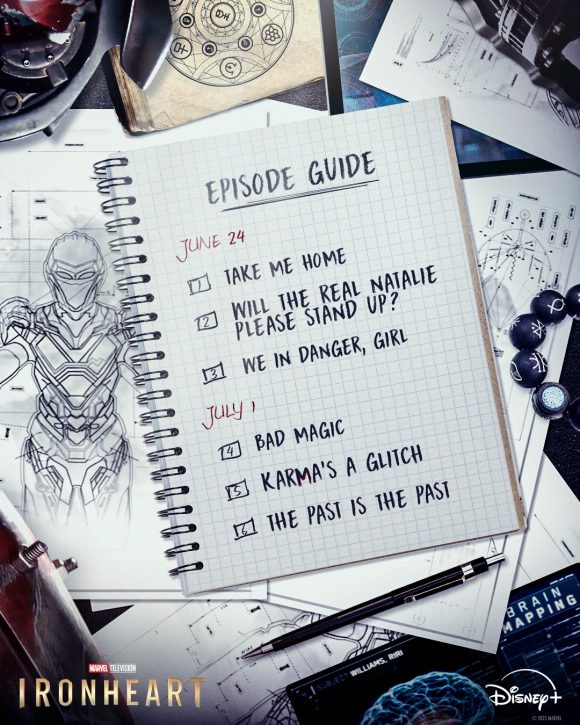 EPISODE GUIDE
JUNE 24
1 TAKE ME HOME
2 WILL THE REAL NATALIE
PLEASE STAND UP?
3 WE IN DANGER, GIRL
JULY 1
4 BAD MAGIC
5 KARMA'S A GLITCH
6 THE PAST IS THE PAST
BRAIN
MAPPING
SUBJECT:
WILLIAMS, RIRI
MARVEL TELEVISION
IRONHEART
Disney+
© 2025 MARVEL